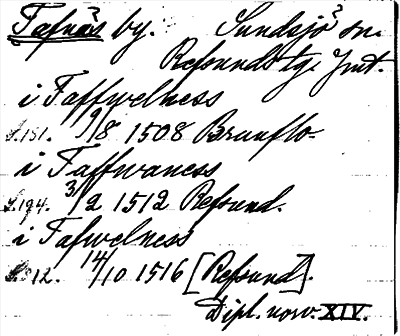 Tafnäs by. Sundsjö sn.
Refsunds tg. Jmt.
i Taffwelness
S.151. 9/8 1508 Brunflo.
i Taffwaness
S.194. 3/2 1512 Refsund.
i Tafwelness
S. 312. 14/10 1516 [Refsund].
Dipl. norv. XIV.